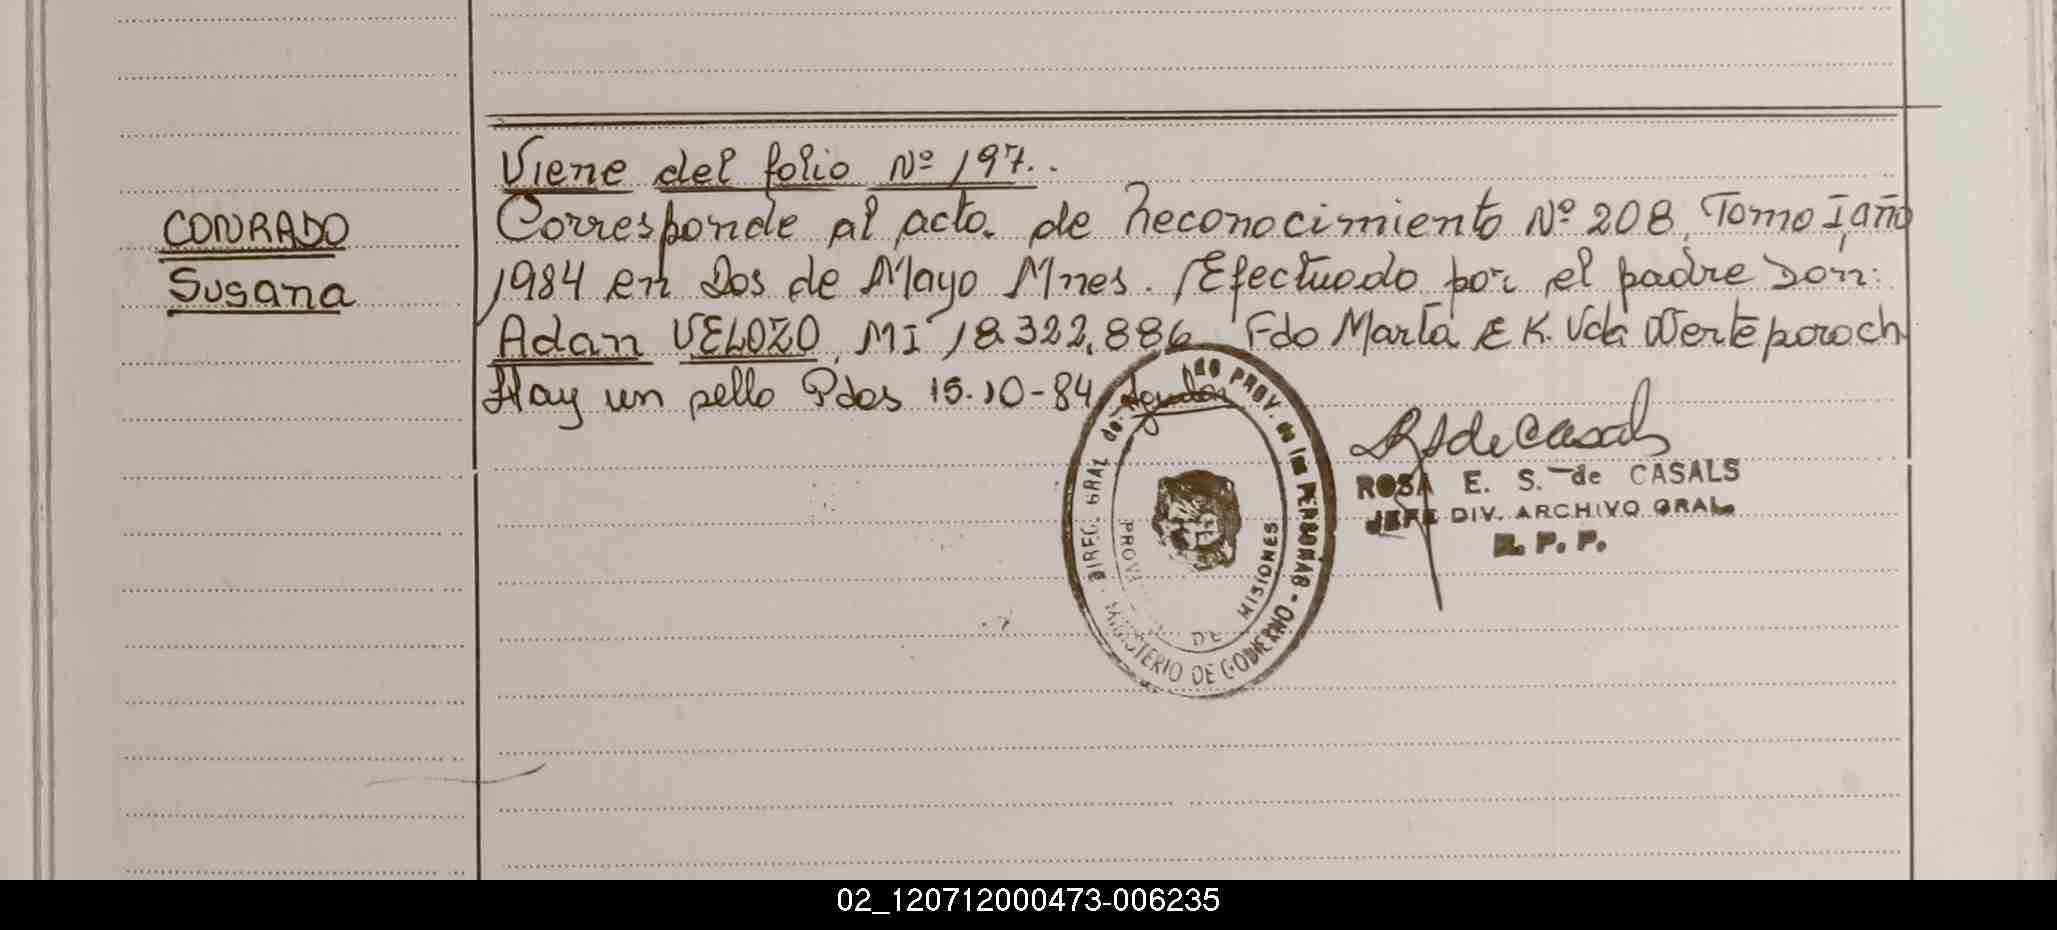 Viene del folio Nº 197..
CONRADO
Susana
Corresponde al acta. de Reconocimiento Nº 208, Tomo I, año
1984 en Dos de Mayo Mnes. Efectuado por el padre Don:
Adan VELOZO, MI 18.322.886 Fdo Marta E K. Vda Werteporoch
Hay un sello Pdas 15.10-84
ROSA E. S. de CASALS
JEFE DIV. ARCHIVO GRAL.
R. P. P.
DIREC. GRAL del REG PROV. de las PERSONAS - MINISTERIO DE GOBIERNO
PROV DE MISIONES
02_120712000473-006235